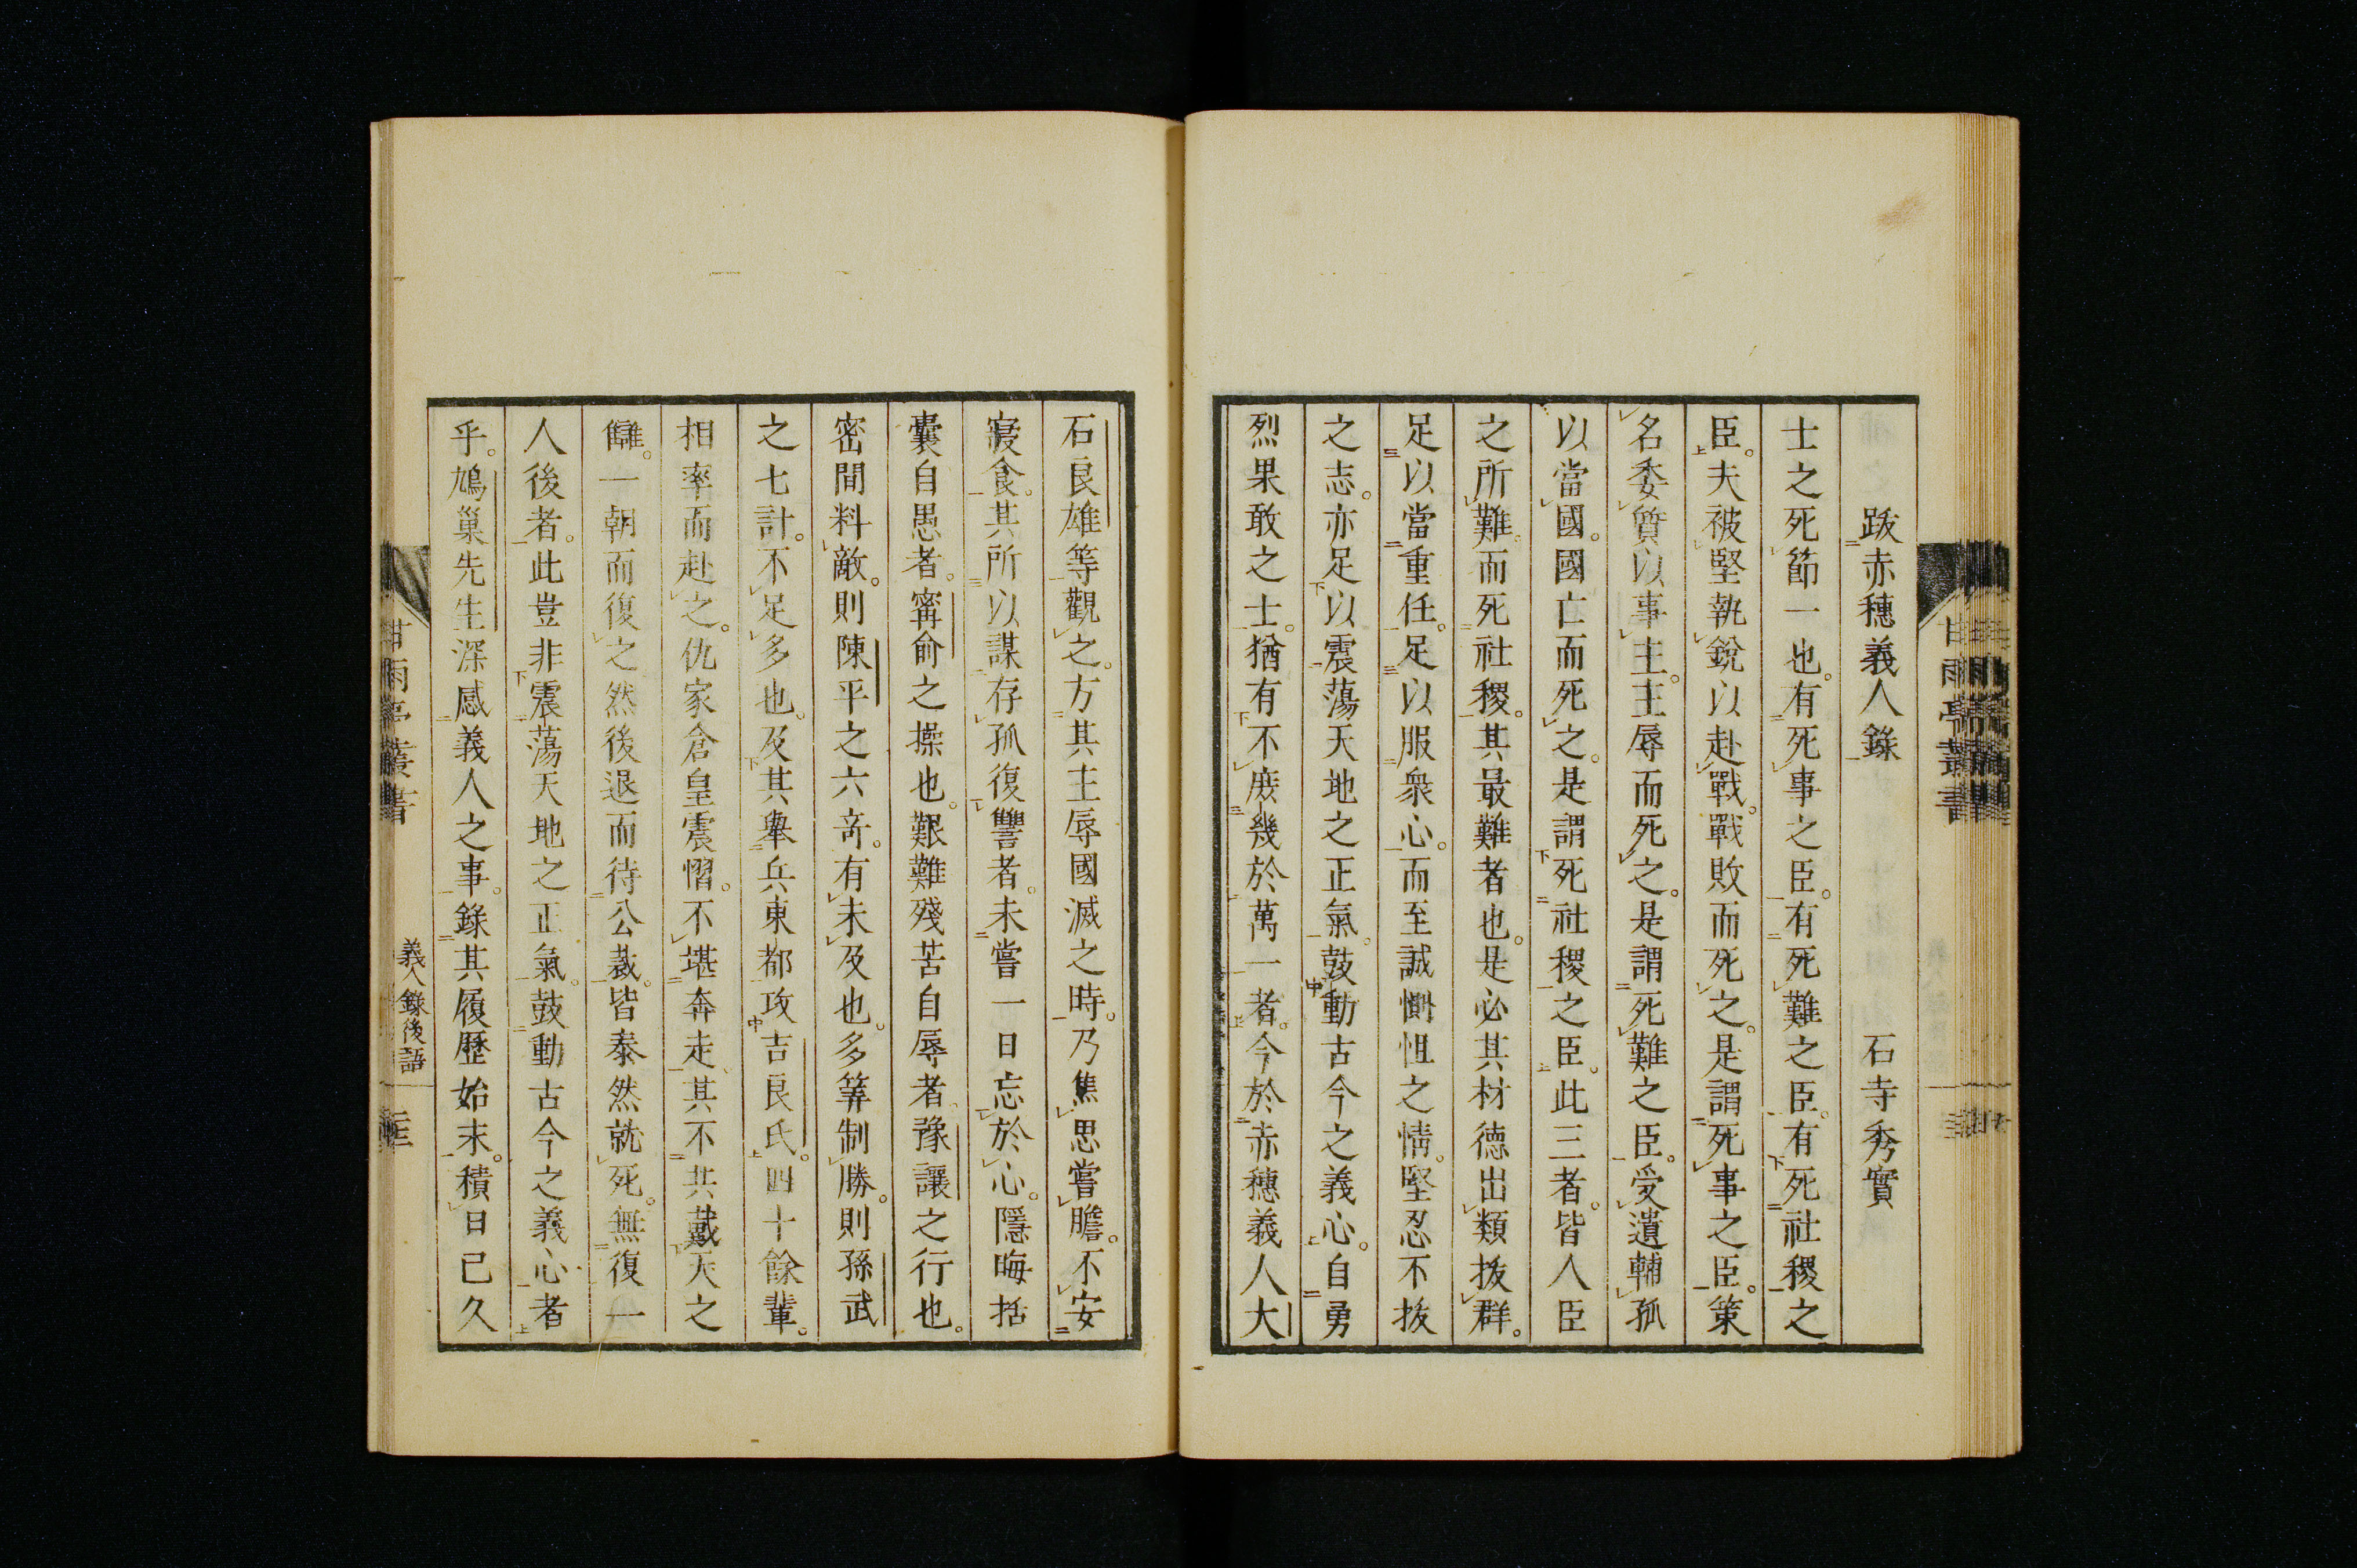 跋赤穗義人錄 石寺秀實
士之死節一也。有死事之臣。有死難之臣。有死社稷之
臣。夫被堅執銳以赴戰。戰敗而死之。是謂死事之臣。策
名委質以事主。主辱而死之。是謂死難之臣。受遺輔孤
以當國。國亡而死之。是謂死社稷之臣。此三者。皆人臣
之所難。而死社稷。其最難者也。是必其材德出類拔群。
足以當重任。足以服衆心。而至誠惻怛之情。堅忍不拔
之志。亦足以震蕩天地之正氣。鼓動古今之義心。自勇
烈果敢之士。猶有不庶幾於萬一者。今於赤穗義人大
石良雄等觀之。方其主辱國滅之時。乃焦思嘗膽。不安
寢食。其所以謀存孤復讐者。未嘗一日忘於心。隱晦括
囊自愚者。甯俞之操也。艱難殘苦自辱者。豫讓之行也。
密間料敵。則陳平之六奇。有未及也。多筭制勝。則孫武
之七計。不足多也。及其舉兵東都攻吉良氏。四十餘輩。
相率而赴之。仇家倉皇震慴。不堪奔走。其不共戴天之
讎。一朝而復之。然後退而待公裁。皆泰然就死。無復一
人後者。此豈非震蕩天地之正氣。鼓動古今之義心者
乎。鳩巢先生深感義人之事。錄其履歷始末。積日已久
甘雨亭叢書 義人錄後語
甘雨亭叢書